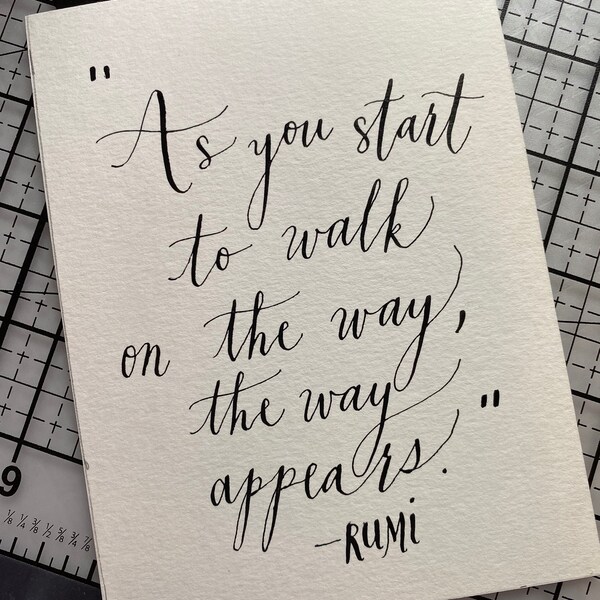 "As you start
to walk
on the way,
the way
appears."
-RUMi
9
1/8 1/4 3/8 1/2 5/8 3/4 7/8